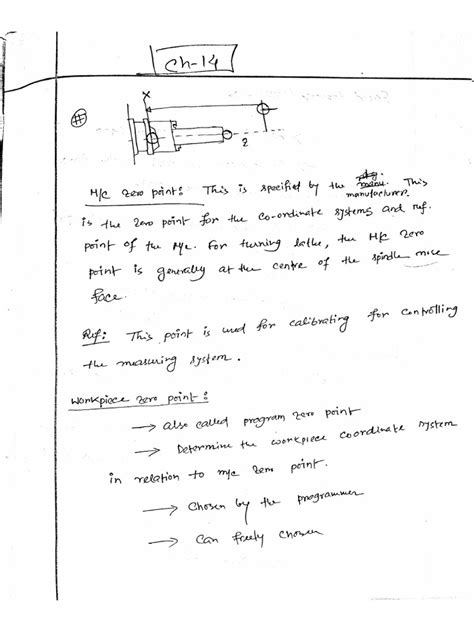 Ch-14
X
Z
M/c zero point: This is specified by the manufacturer. This
is the zero point for the co-ordinate systems and ref.
point of the M/c. For turning lathe, the M/c zero
point is generally at the centre of the spindle nose
face.
Ref: This point is used for calibrating for controlling
the measuring system.
Workpiece zero point:
→ also called program zero point
→ Determine the workpiece coordinate system
in relation to m/c zero point.
→ Chosen by the programmer
→ Can freely chosen